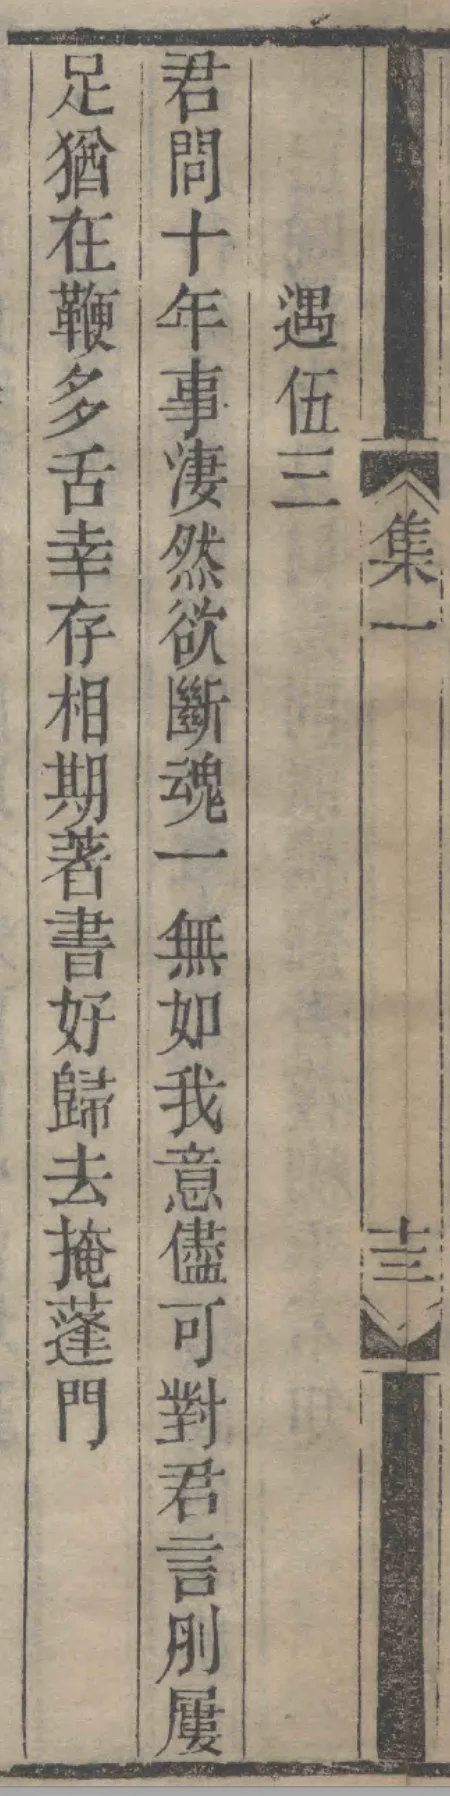 集一
十三
遇伍三
君問十年事淒然欲斷魂一無如我意儘可對君言刖屢
足猶在鞭多舌幸存相期著書好歸去掩蓬門